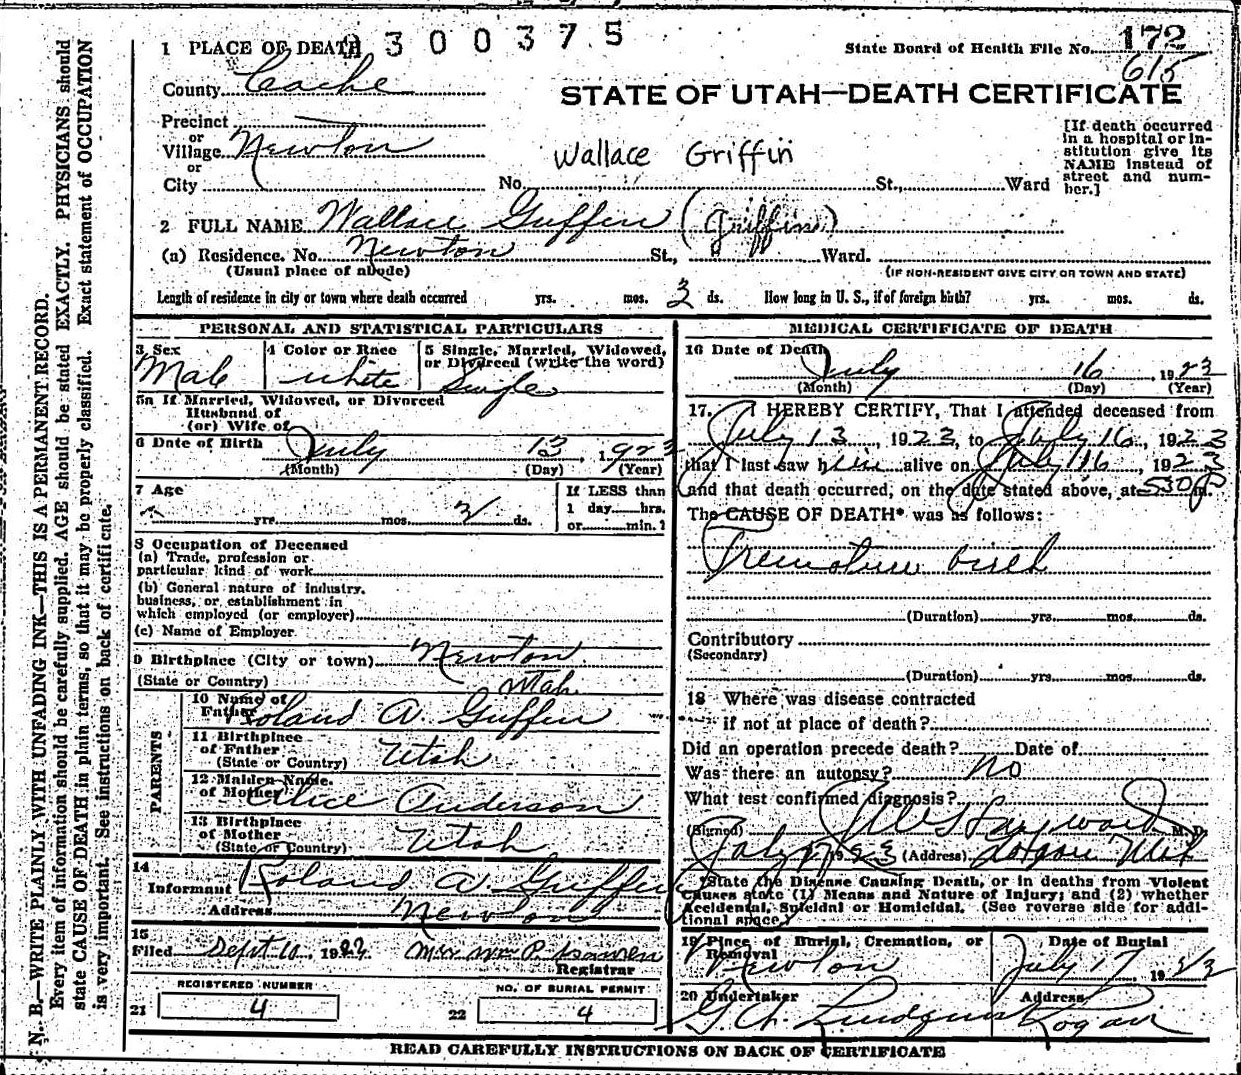 2300375
1 PLACE OF DEATH
State Board of Health File No. 172
615
County Cache
STATE OF UTAH—DEATH CERTIFICATE
Precinct
or
Village Newton
or
City
Wallace Griffin
No. St., Ward
[If death occurred
in a hospital or in-
stitution give its
NAME instead of
street and num-
ber.]
2 FULL NAME Wallace Guffin (Griffin)
(a) Residence. No. Newton St., Ward.
(Usual place of abode)
(IF NON-RESIDENT GIVE CITY OR TOWN AND STATE)
Length of residence in city or town where death occurred yrs. mos. 3 ds. How long in U. S., if of foreign birth? yrs. mos. ds.
PERSONAL AND STATISTICAL PARTICULARS
3 Sex
Male
4 Color or Race
white
5 Single, Married, Widowed,
or Divorced (write the word)
Single
5a If Married, Widowed, or Divorced
Husband of
(or) Wife of
6 Date of Birth
July 13, 1923
(Month) (Day) (Year)
7 Age
yrs. mos. 3 ds.
If LESS than
1 day hrs.
or min.?
8 Occupation of Deceased
(a) Trade, profession or
particular kind of work
(b) General nature of industry,
business, or establishment in
which employed (or employer)
(c) Name of Employer
9 Birthplace (City or town) Newton
(State or Country) Utah
PARENTS
10 Name of
Father Roland A. Guffin
11 Birthplace
of Father
(State or Country) Utah
12 Maiden Name
of Mother Alice Anderson
13 Birthplace
of Mother
(State or Country) Utah
14
Informant Roland A. Guffin
Address Newton
15
Filed Sept 10, 1923 Mrs Wm P.
Registrar
REGISTERED NUMBER
21 4
NO. OF BURIAL PERMIT
22 4
MEDICAL CERTIFICATE OF DEATH
16 Date of Death
July 16, 1923
(Month) (Day) (Year)
17. I HEREBY CERTIFY, That I attended deceased from
July 13, 1923, to July 16, 1923
that I last saw him alive on July 16, 1923
and that death occurred, on the date stated above, at 530 P m.
The CAUSE OF DEATH* was as follows:
Premature birth
(Duration) yrs. mos. ds.
Contributory
(Secondary)
(Duration) yrs. mos. ds.
18 Where was disease contracted
if not at place of death?
Did an operation precede death? Date of
Was there an autopsy? No
What test confirmed diagnosis?
(Signed) Hayward M. D.
July 17 1923 (Address) Logan Utah
*State the Disease Causing Death, or in deaths from Violent
Causes state (1) Means and Nature of Injury; and (2) whether
Accidental, Suicidal or Homicidal. (See reverse side for addi-
tional space.)
19 Place of Burial, Cremation, or
Removal
Newton
Date of Burial
July 17, 1923
20 Undertaker
G. W. Lindquist
Address
Logan
READ CAREFULLY INSTRUCTIONS ON BACK OF CERTIFICATE
N. B.—WRITE PLAINLY WITH UNFADING INK—THIS IS A PERMANENT RECORD.
Every item of information should be carefully supplied. AGE should be stated EXACTLY. PHYSICIANS should
state CAUSE OF DEATH in plain terms, so that it may be properly classified. Exact statement of OCCUPATION
is very important. See instructions on back of certificate.